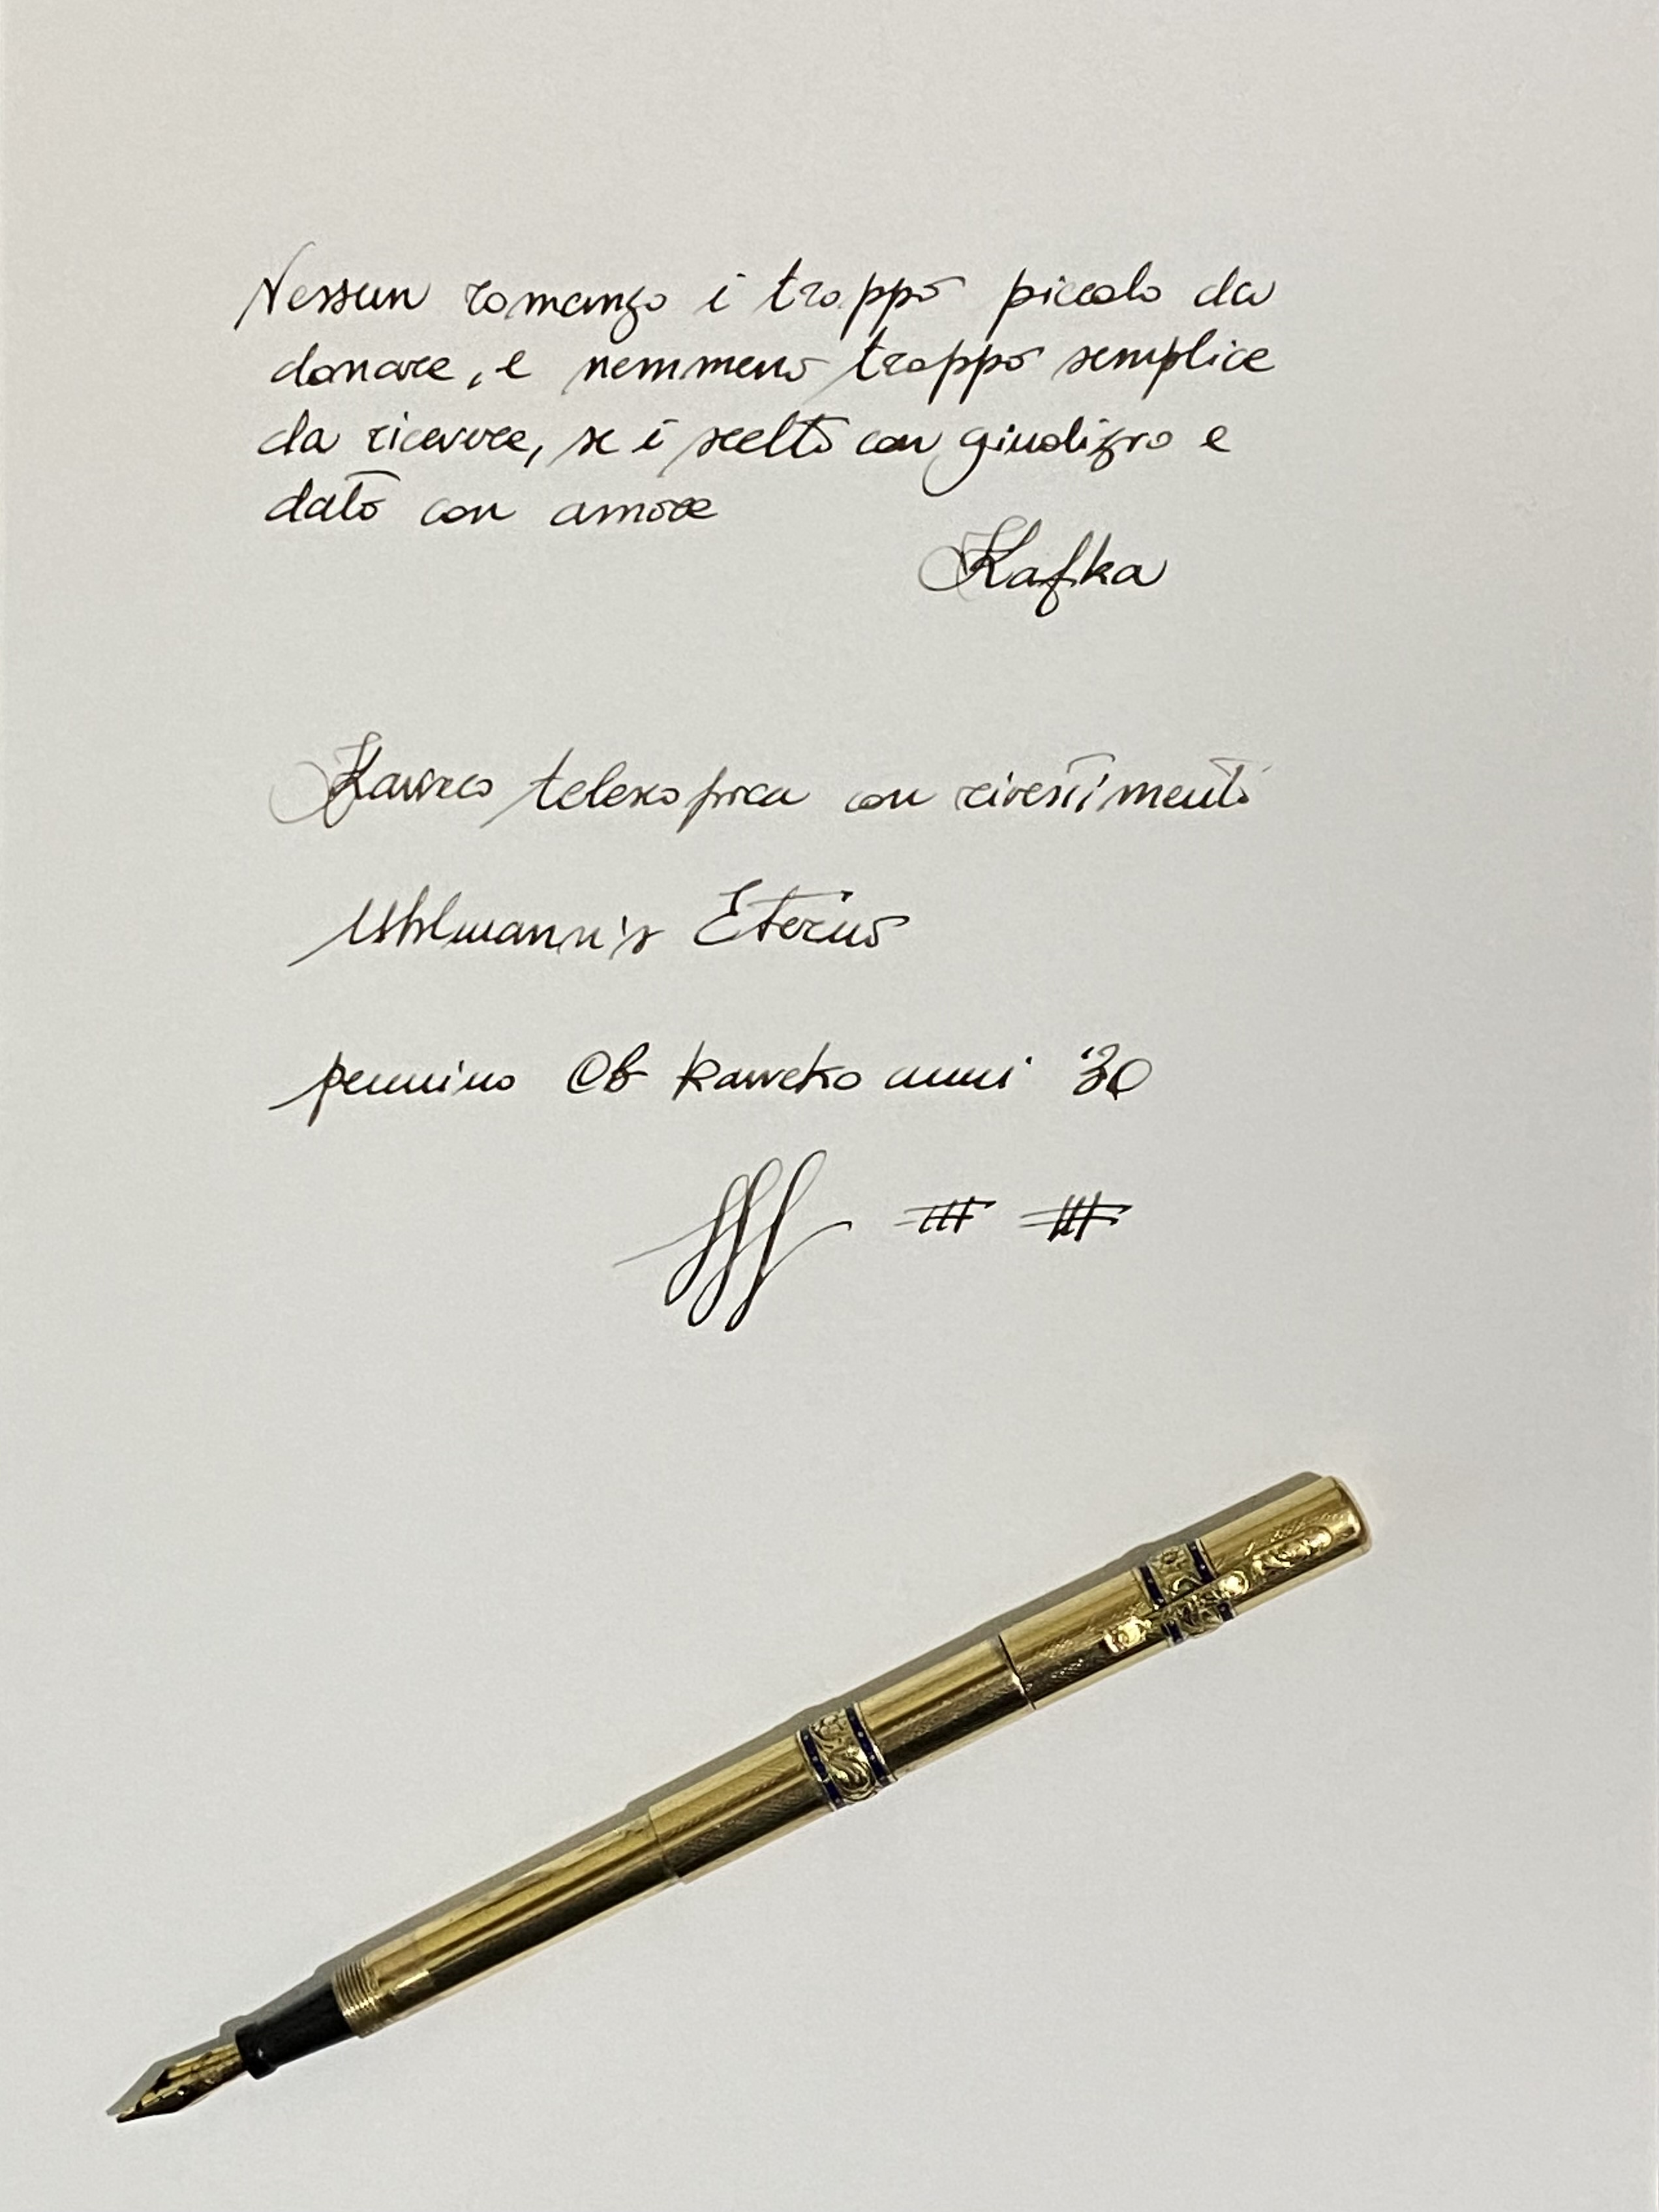 Nessun romanzo è troppo piccolo da
donare, e nemmeno troppo semplice
da ricevere, se è scelto con giudizio e
dato con amore
Kafka
Kaweco telescopica con rivestimento
Uhlmann's Eterno
pennino OB kaweko anni '30